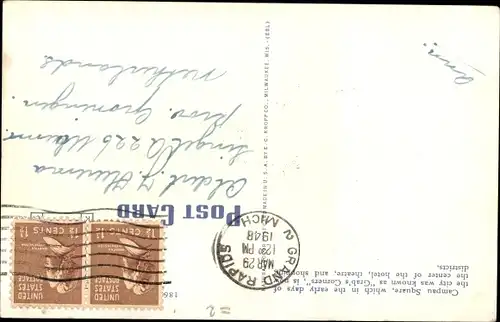 Campau Square, which in the early days of
the city was known as "Grab's Corners", is now
the center of the hotel, theatre, and shopping
districts.
POST CARD
GRAND RAPIDS
MAR 29
12 PM
1948
MICH
1½ CENTS 1½
UNITED
STATES
POSTAGE
1½ CENTS 1½
UNITED
STATES
POSTAGE
Singel A 226
Prov. Groningen
Netherlands
MADE IN U.S.A. BY E. C. KROPP CO., MILWAUKEE, WIS.
= 2